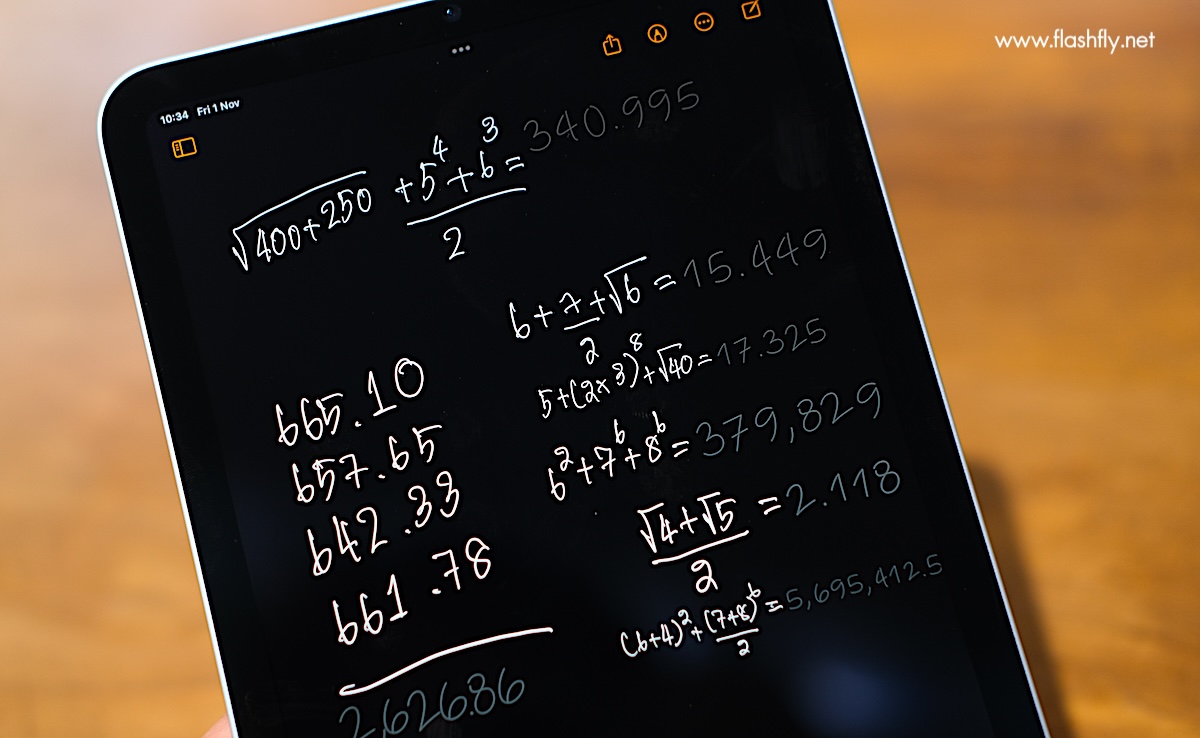 www.flashfly.net
10:34 Fri 1 Nov
√400+250 + 5⁴ + 6³ = 340.995
2
6 + 7/2 + √6 = 15.449
5+(2×3)⁸+√40 = 17.325
6² + 7⁶ + 8⁶ = 379,829
√4+√5 = 2.118
2
(6+4)² + (7+8)⁶ = 5,695,412.5
2
665.10
657.65
642.33
661.78
2,626.86